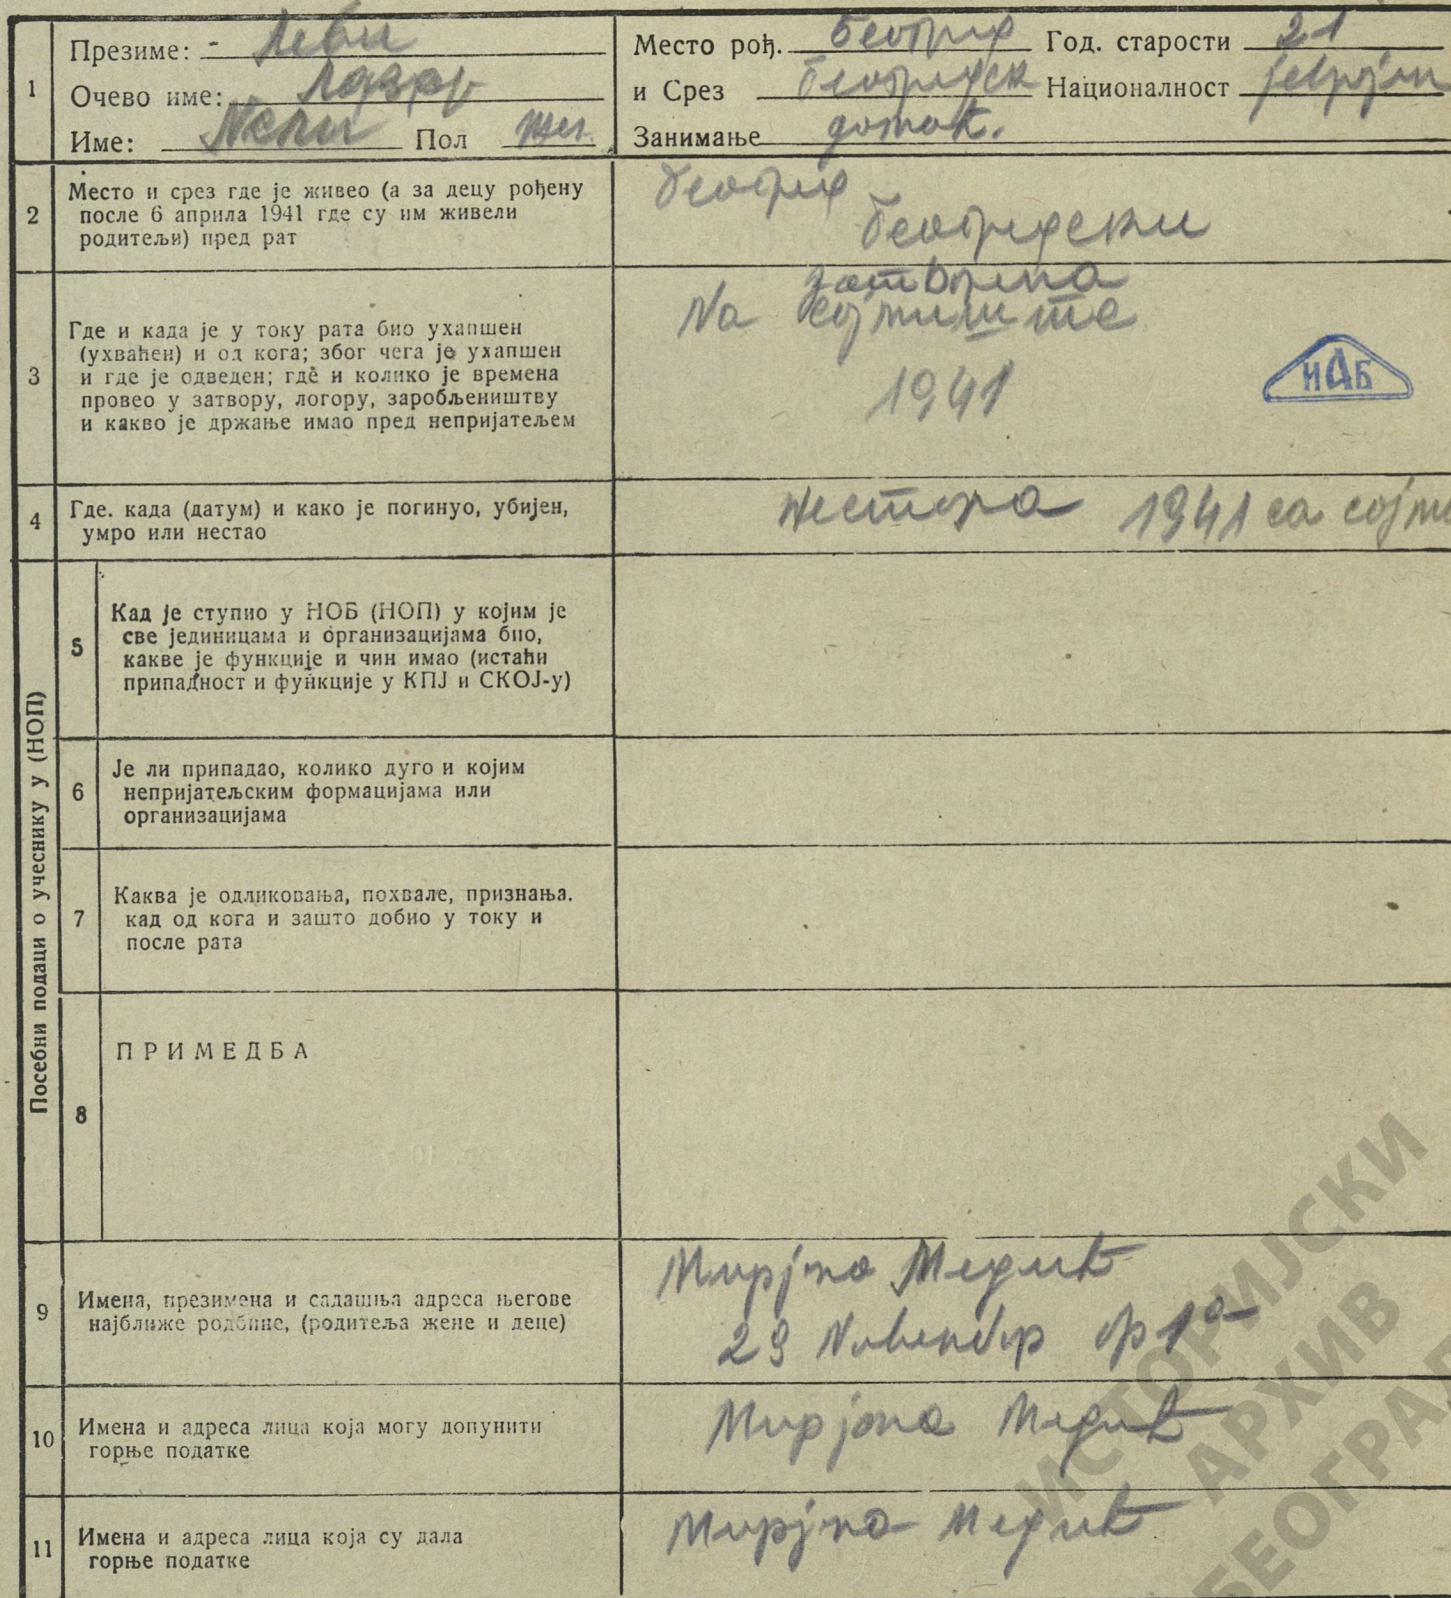 1
Презиме: - Леви
Очево име: Лазар
Име: Нели Пол жен.
Место рођ. Београд Год. старости 21
и Срез Београдск Националност јеврејки
Занимање домаћ.
2
Место и срез где је живео (а за децу рођену
после 6 априла 1941 где су им живели
родитељи) пред рат
Београд
Београдски
3
Где и када је у току рата био ухапшен
(ухваћен) и од кога; због чега је ухапшен
и где је одведен; где и колико је времена
провео у затвору, логору, заробљеништву
и какво је држање имао пред непријатељем
затворена
Na сајмиште
1941
НАБ
4
Где. када (датум) и како је погинуо, убијен,
умро или нестао
нестала 1941 са сајми
Посебни подаци о учеснику у (НОП)
5
Кад је ступио у НОБ (НОП) у којим је
све јединицама и организацијама био,
какве је функције и чин имао (истаћи
припадност и функције у КПЈ и СКОЈ-у)
6
Је ли припадао, колико дуго и којим
непријатељским формацијама или
организацијама
7
Каква је одликовања, похвале, признања.
кад од кога и зашто добио у току и
после рата
8
ПРИМЕДБА
9
Имена, презимена и садашња адреса његове
најближе родбине, (родитеља жене и деце)
Мирјана Медић
29 Novembar бр 1а
10
Имена и адреса лица која могу допунити
горње податке
Мирјана Медић
11
Имена и адреса лица која су дала
горње податке
Мирјана Медић
ИСТОРИЈСКИ
АРХИВ
БЕОГРАД